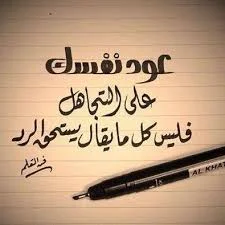 عود نفسك
على التجاهل
فليس كل ما يقال يستحق الرد
AL KHAT